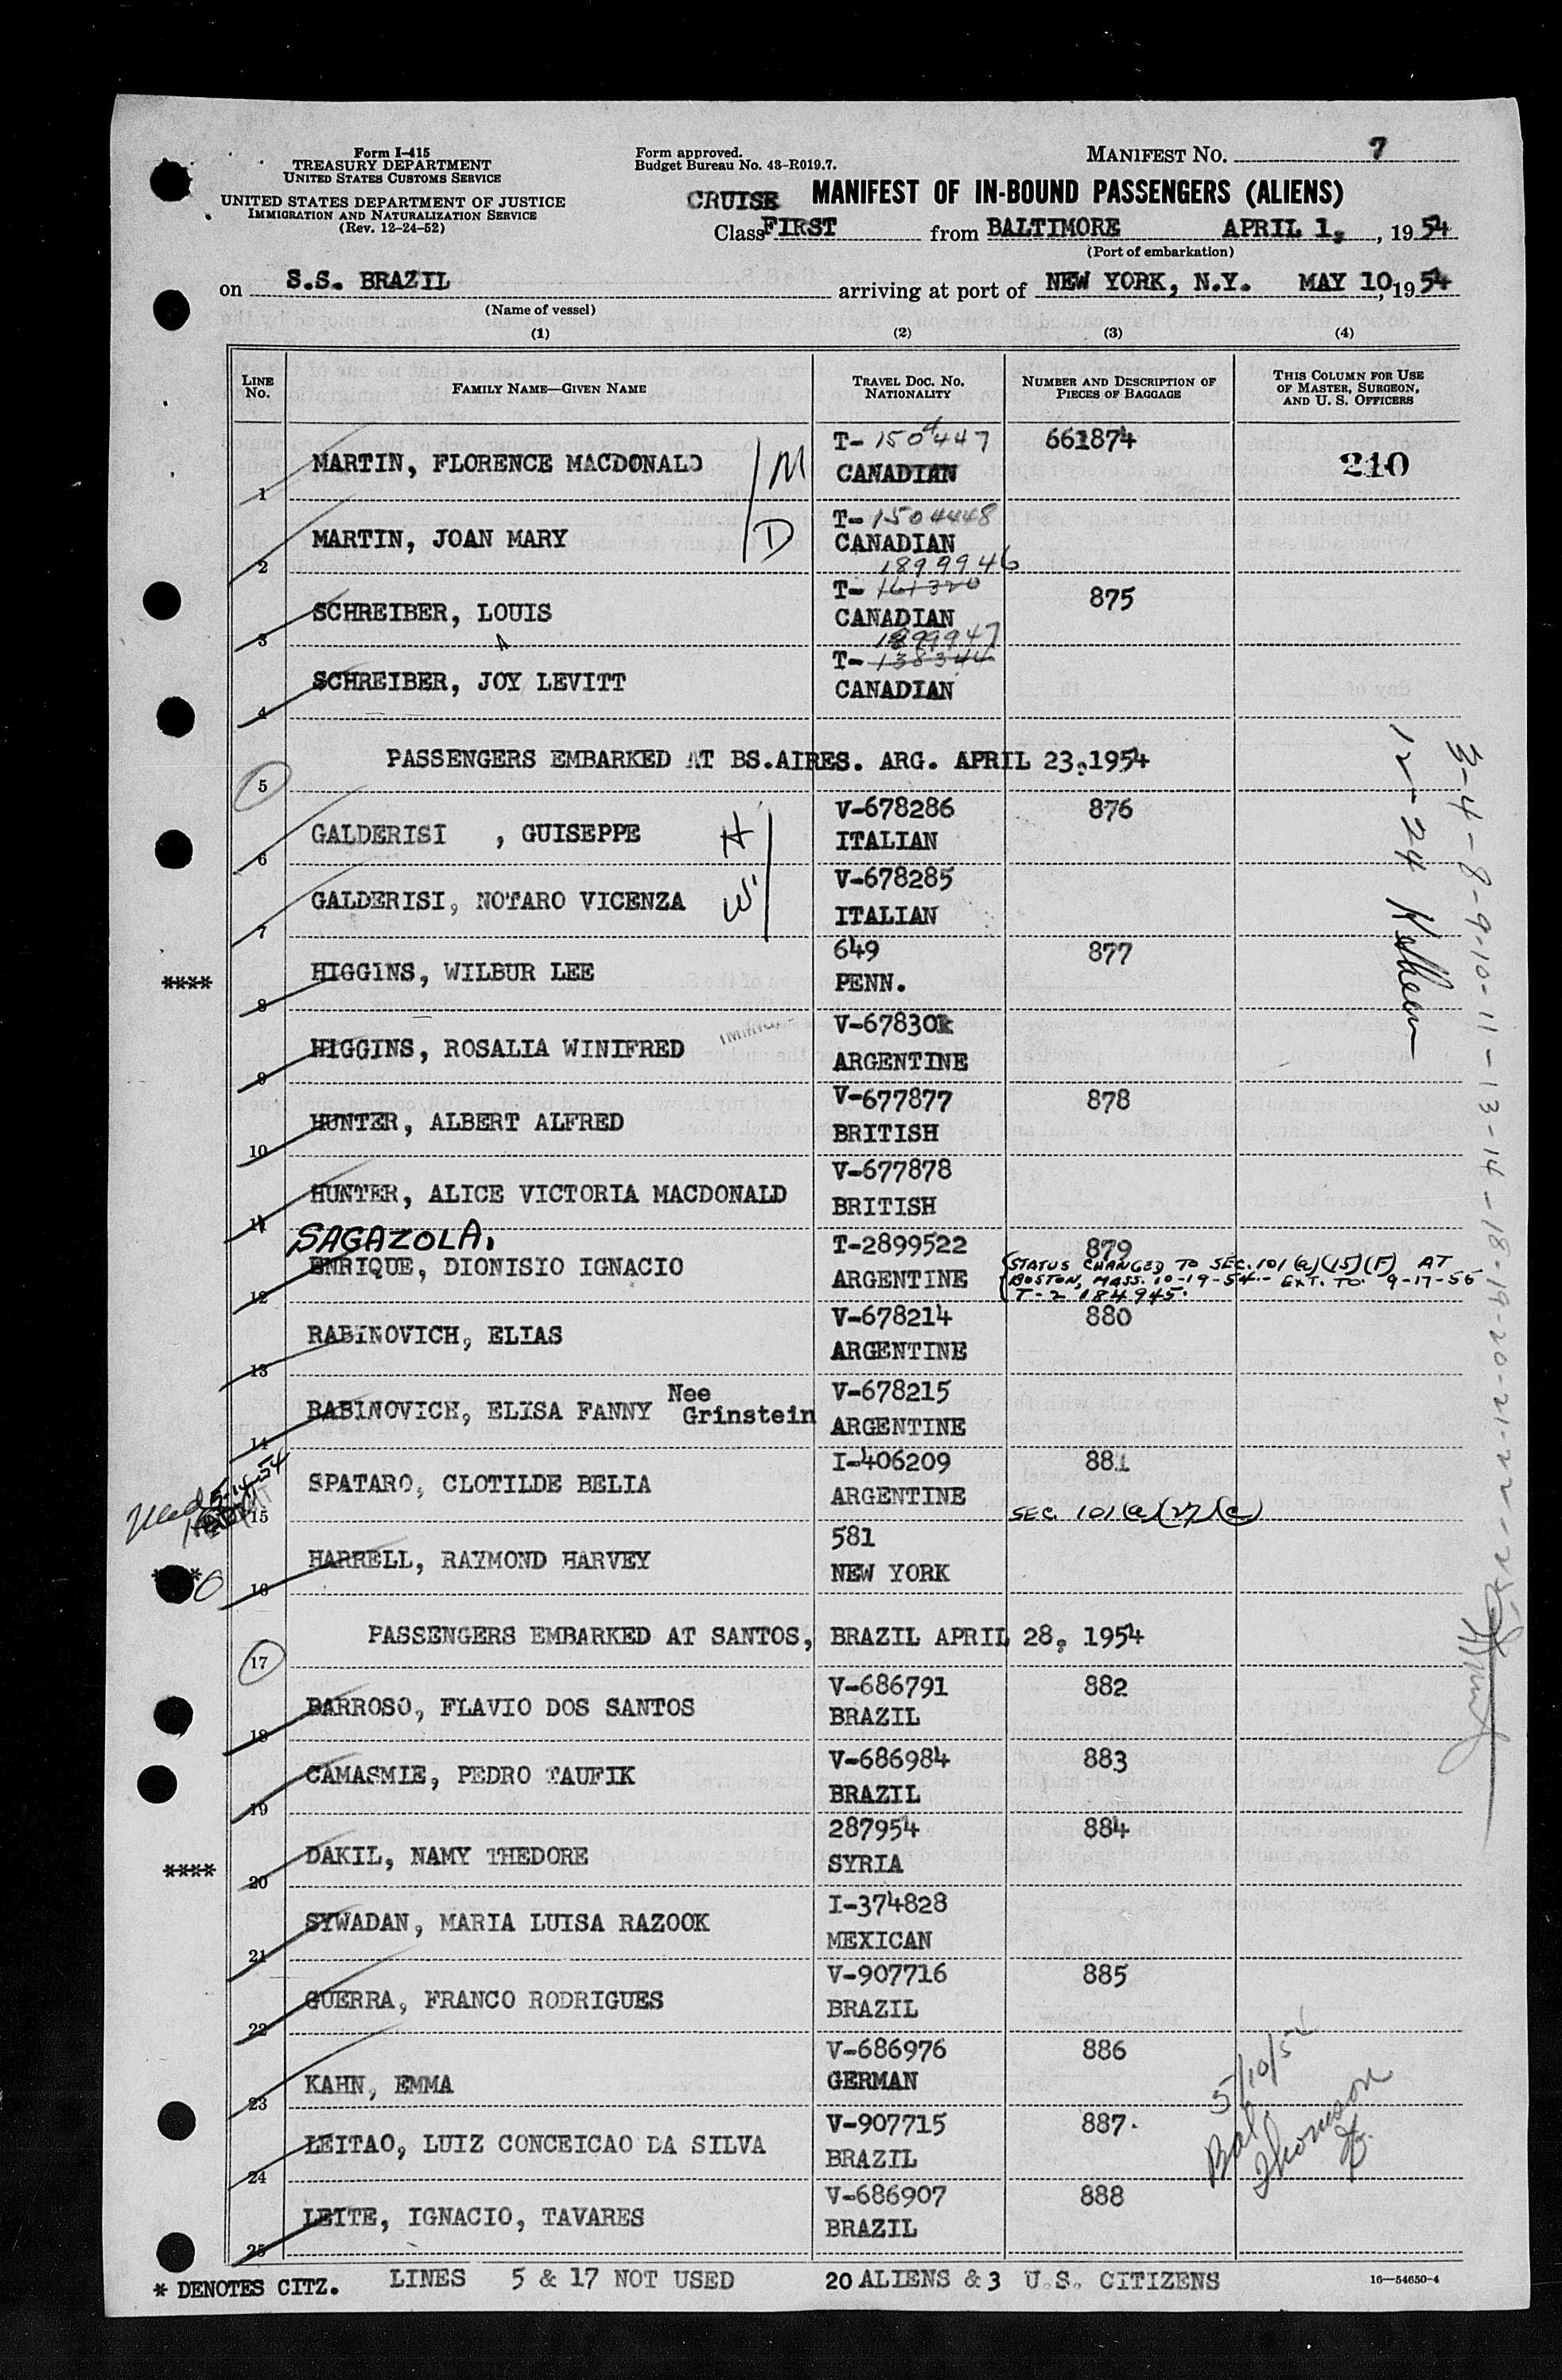 Form I-415
TREASURY DEPARTMENT
UNITED STATES CUSTOMS SERVICE
UNITED STATES DEPARTMENT OF JUSTICE
IMMIGRATION AND NATURALIZATION SERVICE
(Rev. 12-24-52)
Form approved.
Budget Bureau No. 43-R019.7.
MANIFEST No. 7
CRUISE MANIFEST OF IN-BOUND PASSENGERS (ALIENS)
Class FIRST from BALTIMORE APRIL 1, , 19 54
(Port of embarkation)
on S.S. BRAZIL arriving at port of NEW YORK, N.Y. MAY 10, 19 54
(Name of vessel)
(1) (2) (3) (4)
LINE No. FAMILY NAME—GIVEN NAME TRAVEL DOC. NO. NATIONALITY NUMBER AND DESCRIPTION OF PIECES OF BAGGAGE THIS COLUMN FOR USE OF MASTER, SURGEON, AND U. S. OFFICERS
1 MARTIN, FLORENCE MACDONALD M T-1504447 CANADIAN 661874 210
2 MARTIN, JOAN MARY D T-1504448 CANADIAN
3 SCHREIBER, LOUIS 1899946 T-161320 CANADIAN 875
4 SCHREIBER, JOY LEVITT 1899947 T-138344 CANADIAN
5 PASSENGERS EMBARKED AT BS.AIRES. ARG. APRIL 23, 1954
6 GALDERISI , GUISEPPE H V-678286 ITALIAN 876
7 GALDERISI, NOTARO VICENZA W V-678285 ITALIAN
**** 8 HIGGINS, WILBUR LEE 649 PENN. 877
9 HIGGINS, ROSALIA WINIFRED V-67830 ARGENTINE
10 HUNTER, ALBERT ALFRED V-677877 BRITISH 878
11 HUNTER, ALICE VICTORIA MACDONALD V-677878 BRITISH
SAGAZOLA,
12 ENRIQUE, DIONISIO IGNACIO T-2899522 ARGENTINE 879
STATUS CHANGED TO SEC. 101 (a)(15)(F) AT
BOSTON, MASS. 10-19-54 - EXT. TO 9-17-55
T-2 184945.
13 RABINOVICH, ELIAS V-678214 ARGENTINE 880
14 RABINOVICH, ELISA FANNY Nee Grinstein V-678215 ARGENTINE
5-14-54
15 SPATARO, CLOTILDE BELIA I-406209 ARGENTINE 881
SEC. 101 (a)(27)(C)
16 HARRELL, RAYMOND HARVEY 581 NEW YORK
17 PASSENGERS EMBARKED AT SANTOS, BRAZIL APRIL 28, 1954
18 BARROSO, FLAVIO DOS SANTOS V-686791 BRAZIL 882
19 CAMASMIE, PEDRO TAUFIK V-686984 BRAZIL 883
**** 20 DAKIL, NAMY THEDORE 287954 SYRIA 884
21 SYWADAN, MARIA LUISA RAZOOK I-374828 MEXICAN
22 GUERRA, FRANCO RODRIGUES V-907716 BRAZIL 885
23 KAHN, EMMA V-686976 GERMAN 886
24 LEITAO, LUIZ CONCEICAO DA SILVA V-907715 BRAZIL 887.
25 LEITE, IGNACIO, TAVARES V-686907 BRAZIL 888
12-24
3-4-8-9-10-11-13-14-18-19-20-21-22
5/10/54
Bal
Thomson
* DENOTES CITZ. LINES 5 & 17 NOT USED 20 ALIENS & 3 U.S. CITIZENS 16—54650-4